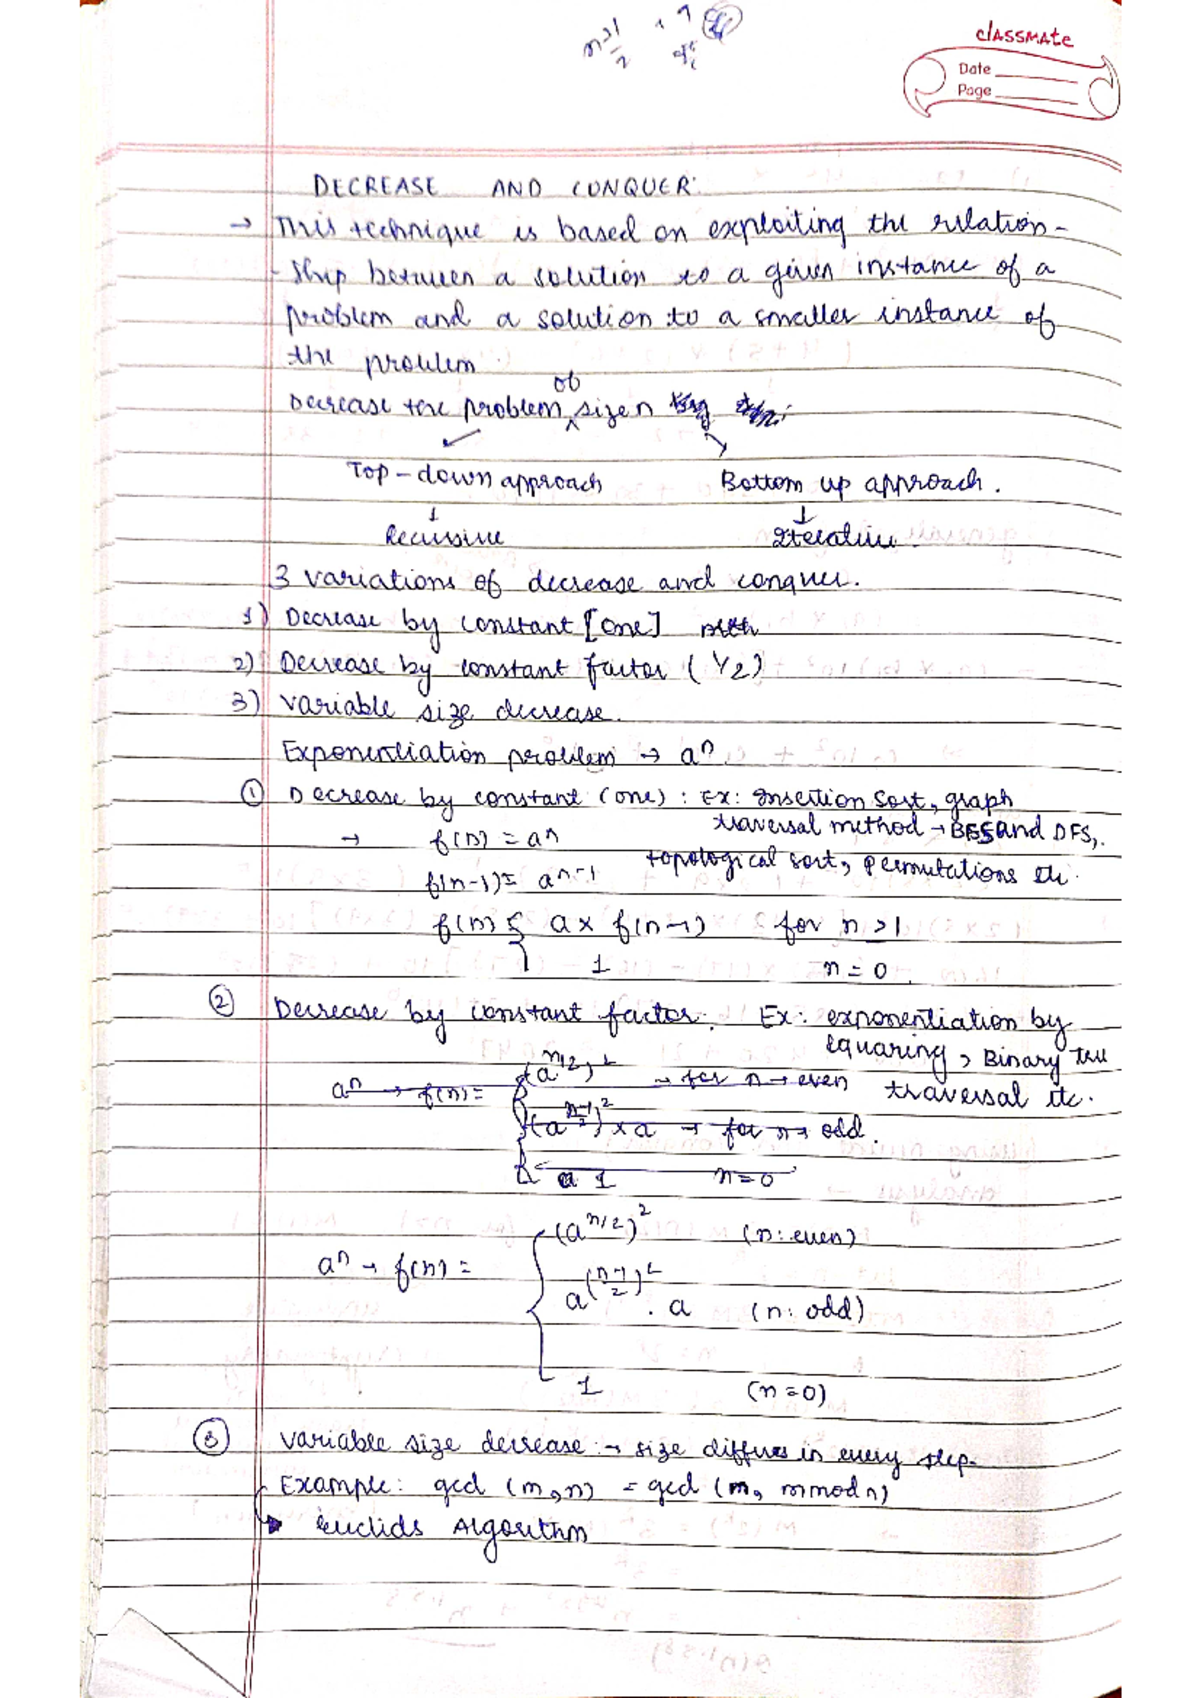 classmate
Date
Page
DECREASE AND CONQUER:
→ This technique is based on exploiting the relation-
-ship between a solution to a given instance of a
problem and a solution to a smaller instance of
the problem
of
Decrease the problem ^ size n
Top-down approach Bottom up approach.
↓ ↓
Recursive Iterative
3 variations of decrease and conquer.
1) Decrease by constant [one]
2) Decrease by constant factor (1/2)
3) variable size decrease.
Exponentiation problem → aⁿ
① Decrease by constant (one) : Ex: Insertion Sort, graph
traversal method → BFS and DFS,
→ f(n) = aⁿ
topological sort, permutations etc.
f(n-1) = aⁿ⁻¹
f(n) { a × f(n-1) for n ≥ 1
1 n = 0
② Decrease by constant factor. Ex: exponentiation by
squaring, Binary tree
traversal etc.
aⁿ → f(n) = (a^n/2)² → for n → even
(a^(n-1)/2)² × a → for n → odd.
a 1 n = 0
aⁿ → f(n) = { (a^n/2)² (n: even)
a^((n-1)/2)² . a (n: odd)
1 (n=0)
③ variable size decrease → size differs in every step.
Example: gcd (m, n) = gcd (m, m mod n)
Euclids Algorithm